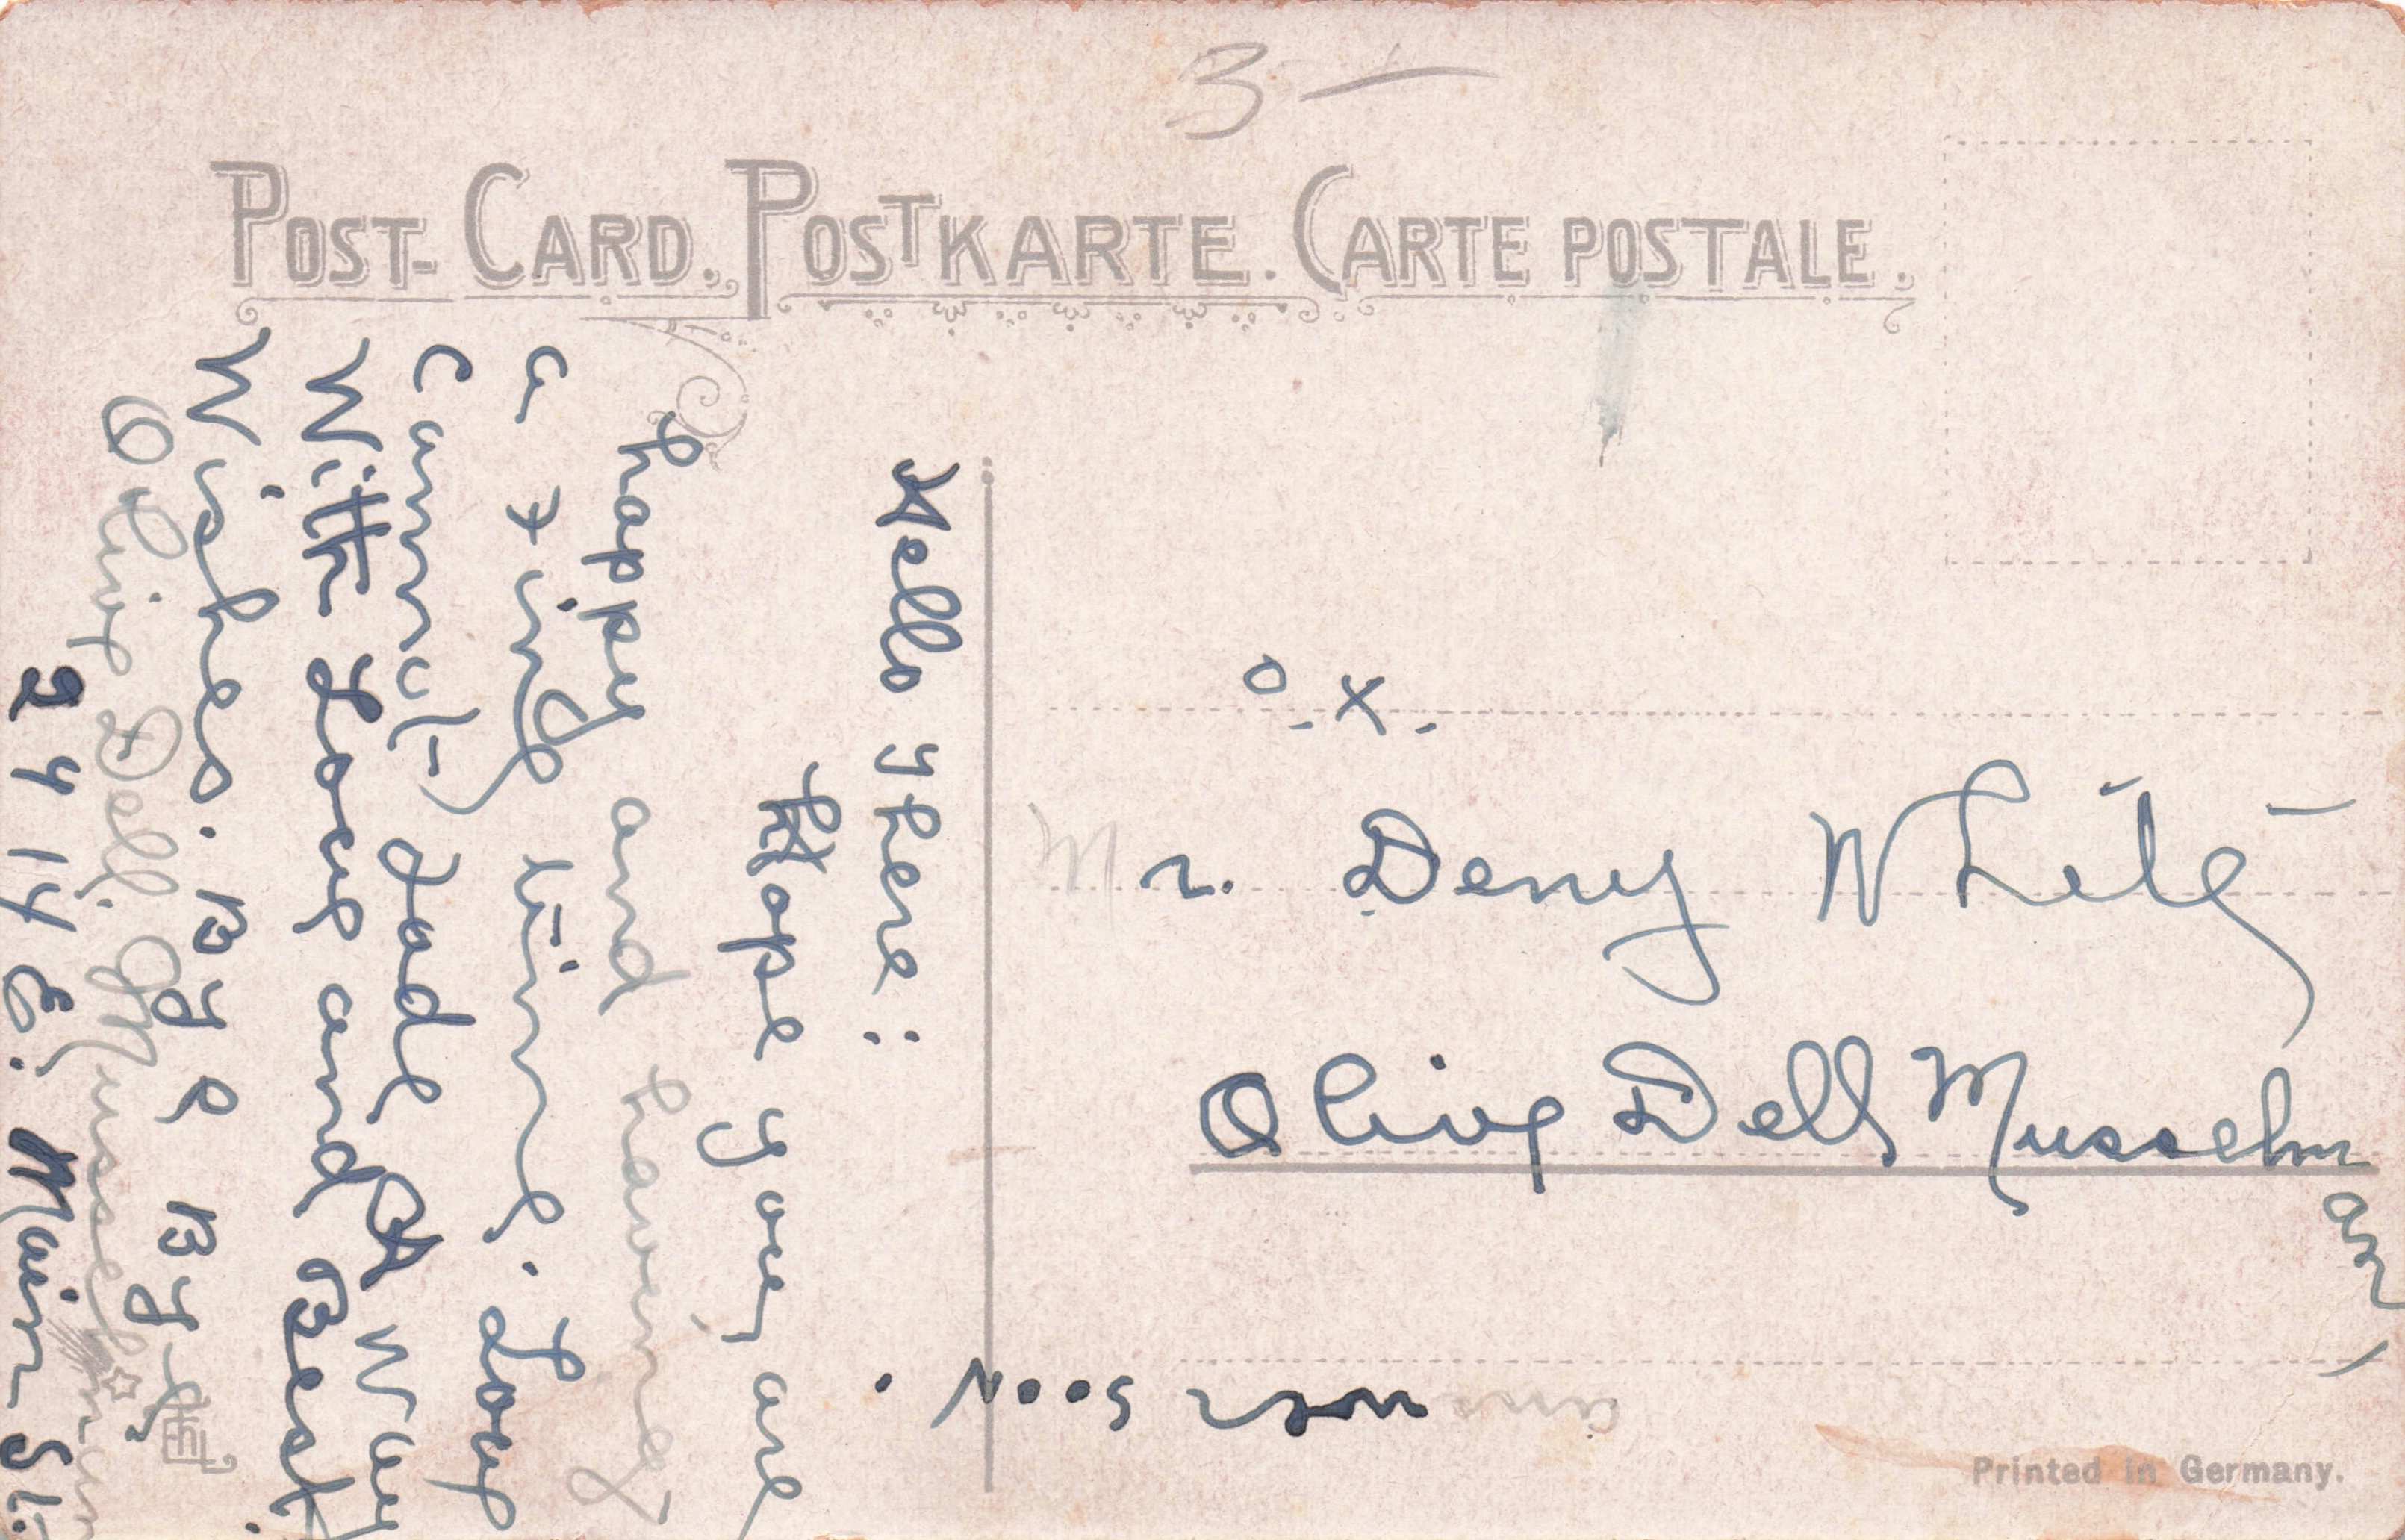 3 —
POST-CARD. POSTKARTE. CARTE POSTALE.
o. x.
Mr. Deny White
Olive Dell Musselm
an
Printed in Germany.
Hello There:
Hope you are
happy and having
a fine time. Love
Dad
With Love and Best
Wishes. Bye Bye
Olive Dell Musselman
2414 E. Main St.
ans
soon.